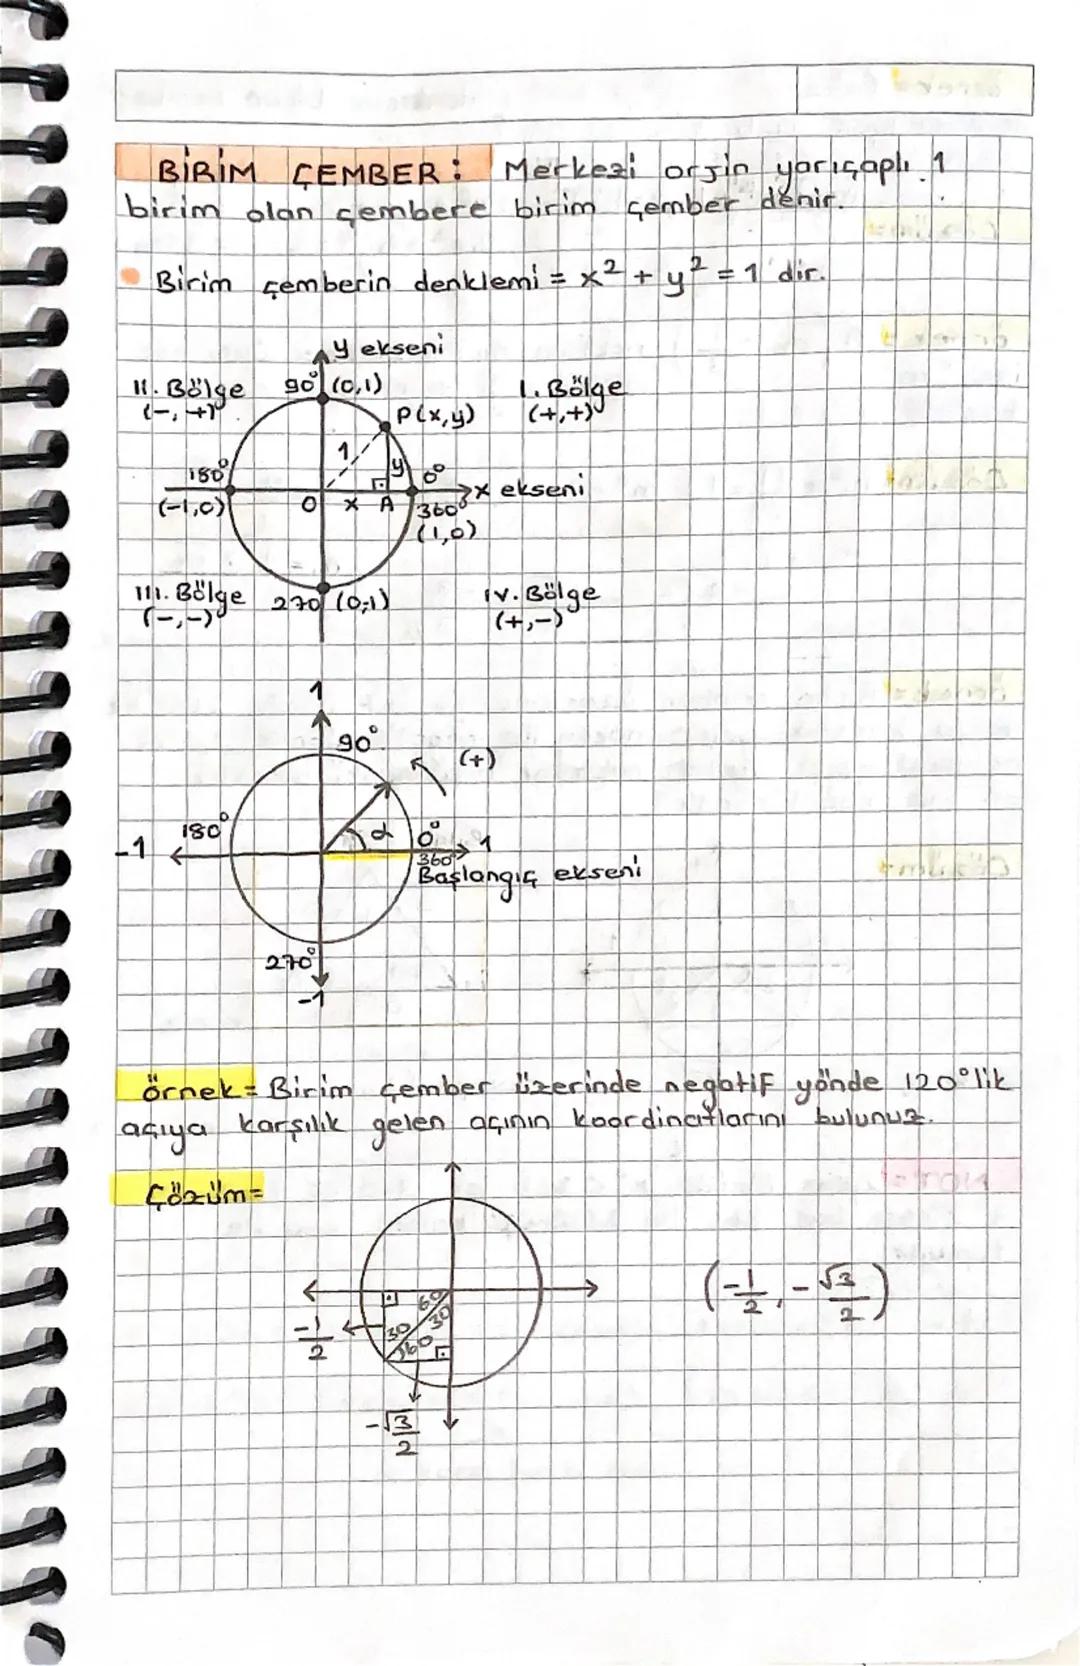 BİRİM ÇEMBER: Merkezi orjin yarıçaplı 1
birim olan çembere birim çember denir.
Birim çemberin denklemi = x² + y² = 1 dir.
y ekseni
II. Bölge 90° (0,1) I. Bölge
(-,+) P(x,y) (+,+)
1
180° y 0°
x ekseni
(-1,0) O x A 360°
(1,0)
III. Bölge 270 (0,-1) IV. Bölge
(-,-) (+,-)
1
90°
(+)
180° α 0°
-1 1
360°
Başlangıç ekseni
270°
-1
örnek = Birim çember üzerinde negatif yönde 120°lik
açıya karşılık gelen açının koordinatlarını bulunuz.
Çözüm =
(-1/2, -√3/2)
60
30
-1/2 30
60
-√3/2